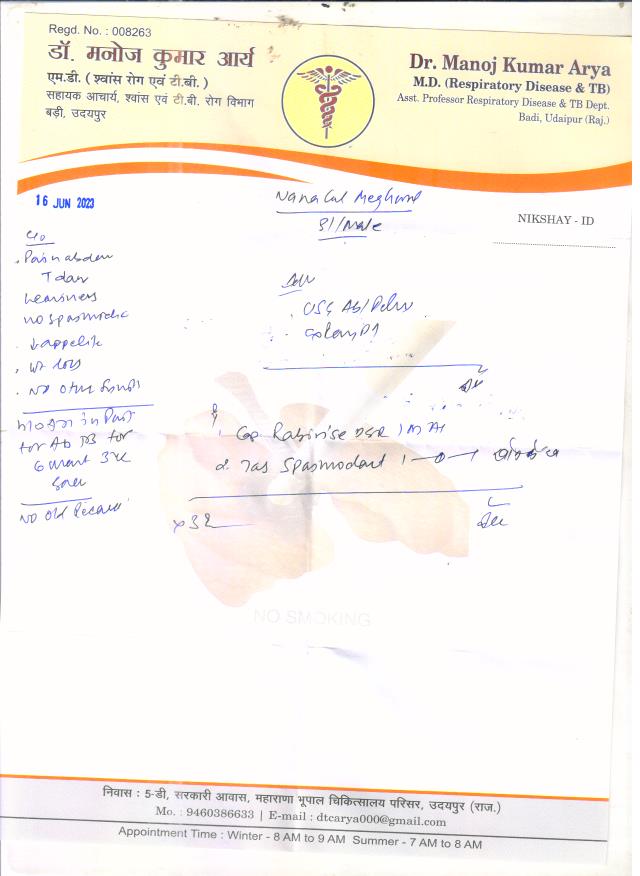 Regd. No. : 008263
डॉ. मनोज कुमार आर्य
एम.डी. ( श्वांस रोग एवं टी.बी. )
सहायक आचार्य, श्वांस एवं टी.बी. रोग विभाग
बड़ी, उदयपुर
Dr. Manoj Kumar Arya
M.D. (Respiratory Disease & TB)
Asst. Professor Respiratory Disease & TB Dept.
Badi, Udaipur (Raj.)
16 JUN 2023
Meghwal
/Male
NIKSHAY - ID
c/o
Pain abdomen
7 days
heaviness
no spasmodic
↓appetite
wt loss
NO other
USG Abd/Pelvis
in Past
for Ab TB for
6 month
NO Old Record
Cap Rabirise DSR
2. Tab Spasmodart 1-0-1
NO SMOKING
निवास : 5-डी, सरकारी आवास, महाराणा भूपाल चिकित्सालय परिसर, उदयपुर (राज.)
Mo. : 9460386633 | E-mail : dtcarya000@gmail.com
Appointment Time : Winter - 8 AM to 9 AM Summer - 7 AM to 8 AM